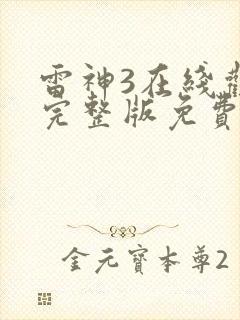 雷神3在綫觀
完整版免費
金元寶本尊2